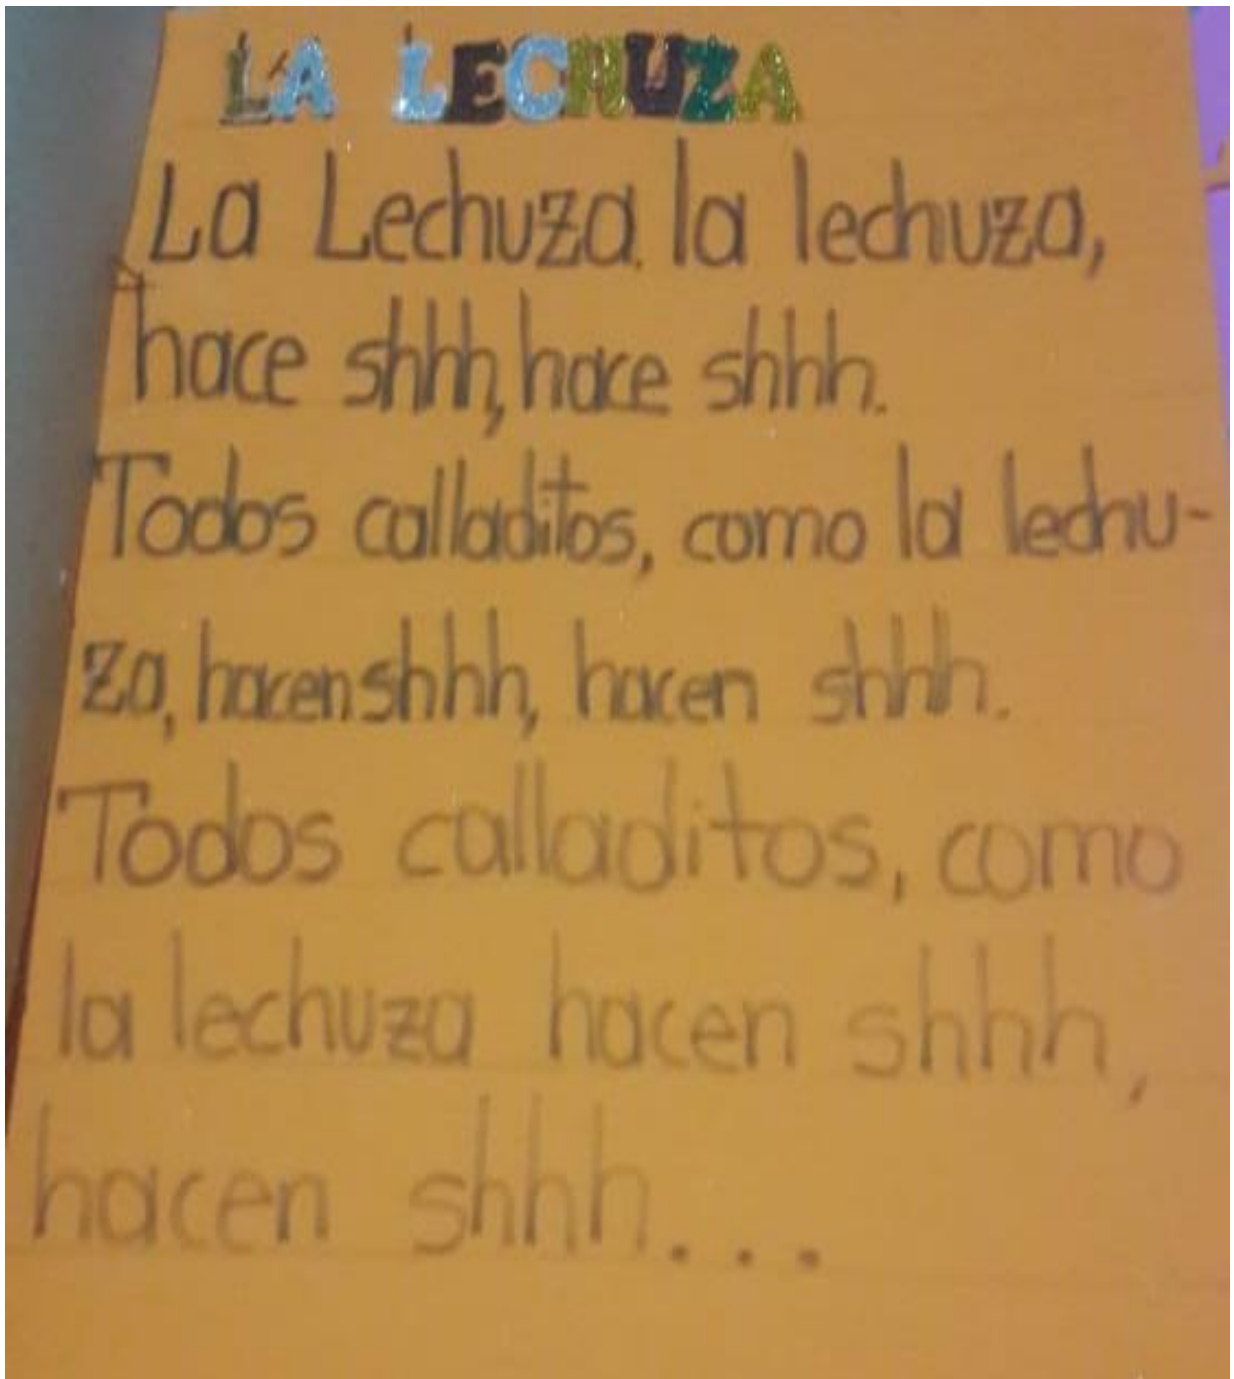 LA LECHUZA
La Lechuza, la lechuza,
hace shhh, hace shhh.
Todos calladitos, como la lechu-
za, hacen shhh, hacen shhh.
Todos calladitos, como
la lechuza hacen shhh,
hacen shhh...